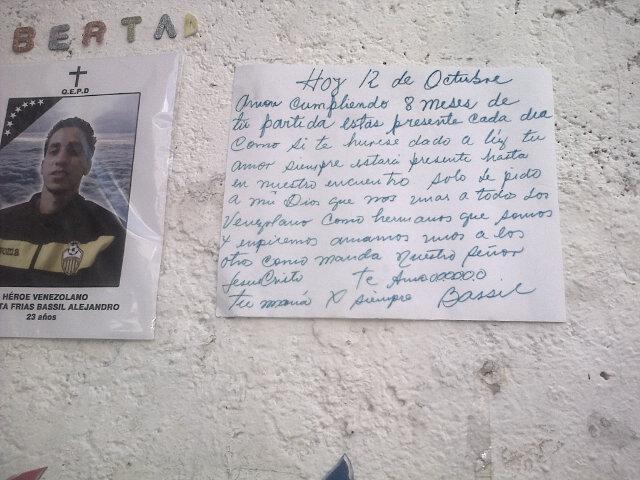 BERTAD
Q.E.P.D
HÉROE VENEZOLANO
TA FRIAS BASSIL ALEJANDRO
23 años
Hoy 12 de Octubre
Amor Cumpliendo 8 meses de
tu partida estás presente cada día
Como si te hubiese dado a luz tu
amor siempre estará presente hasta
en nuestro encuentro solo le pido
a mi Dios que nos una a todo los
Venezolano como hermanos que somos
y empiremos amarnos unos a los
otro como manda Nuestro Señor
JesusCristo Te Amooooooo
tu mamá X siempre Bassil